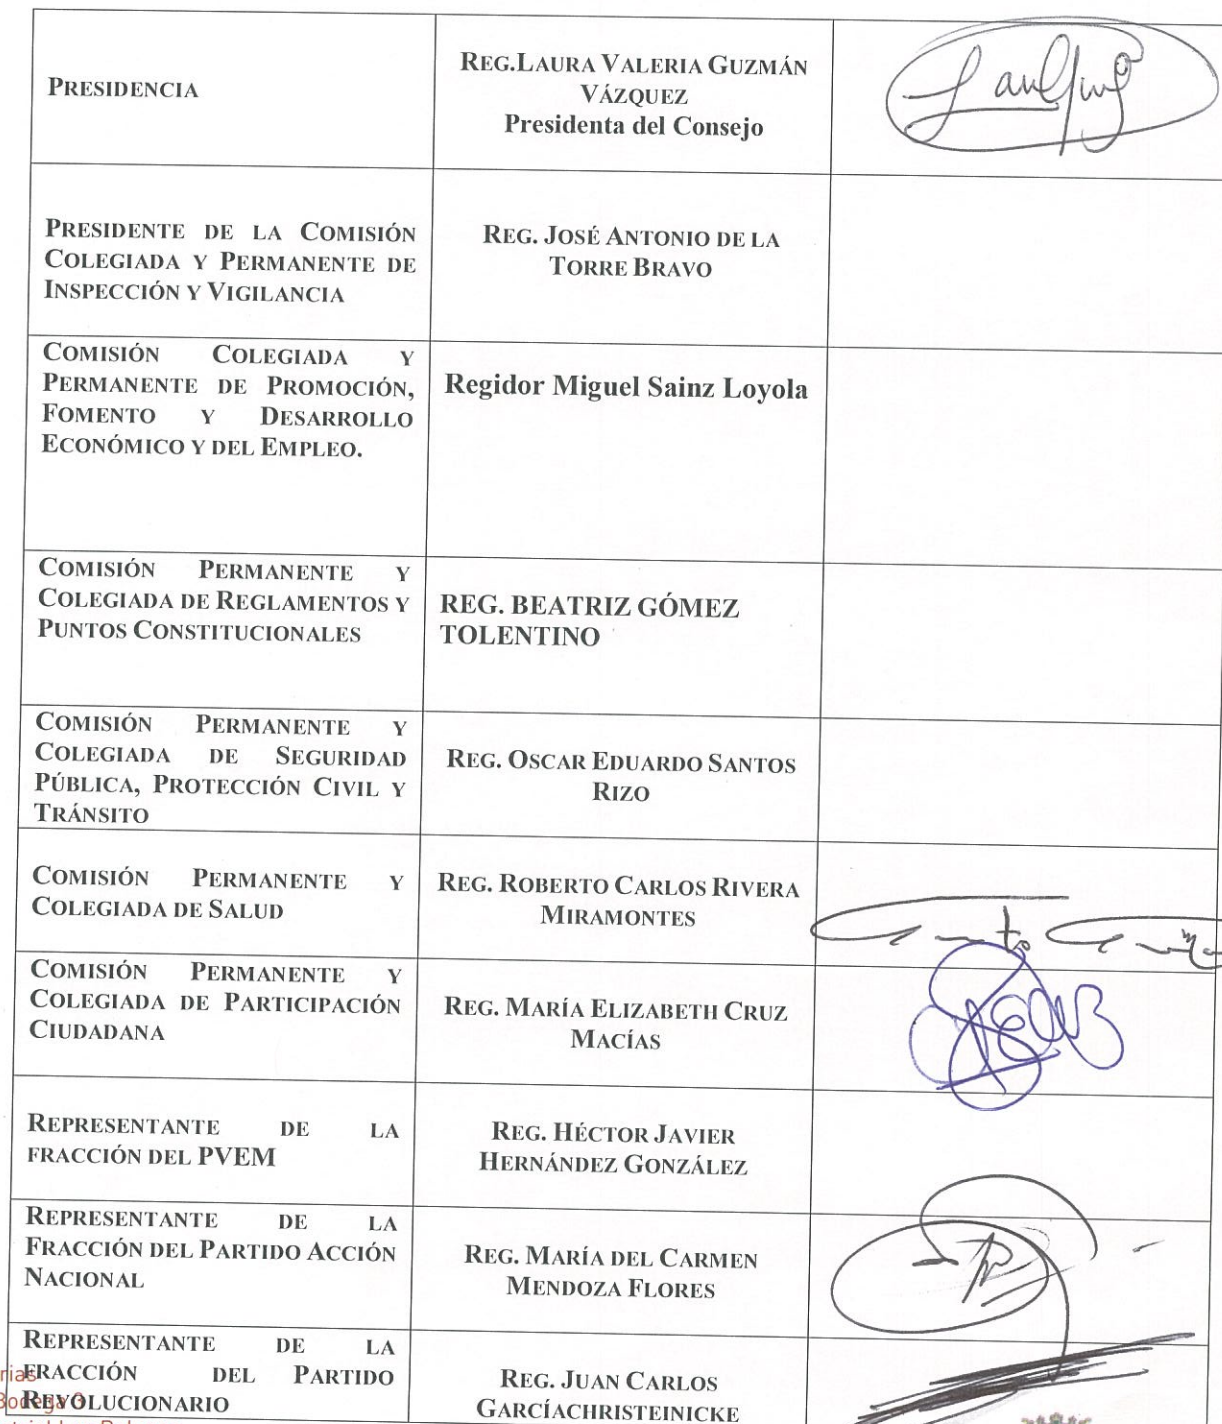 PRESIDENCIA
REG.LAURA VALERIA GUZMÁN
VÁZQUEZ
Presidenta del Consejo
PRESIDENTE DE LA COMISIÓN
COLEGIADA Y PERMANENTE DE
INSPECCIÓN Y VIGILANCIA
REG. JOSÉ ANTONIO DE LA
TORRE BRAVO
COMISIÓN COLEGIADA Y
PERMANENTE DE PROMOCIÓN,
FOMENTO Y DESARROLLO
ECONÓMICO Y DEL EMPLEO.
Regidor Miguel Sainz Loyola
COMISIÓN PERMANENTE Y
COLEGIADA DE REGLAMENTOS Y
PUNTOS CONSTITUCIONALES
REG. BEATRIZ GÓMEZ
TOLENTINO
COMISIÓN PERMANENTE Y
COLEGIADA DE SEGURIDAD
PÚBLICA, PROTECCIÓN CIVIL Y
TRÁNSITO
REG. OSCAR EDUARDO SANTOS
RIZO
COMISIÓN PERMANENTE Y
COLEGIADA DE SALUD
REG. ROBERTO CARLOS RIVERA
MIRAMONTES
COMISIÓN PERMANENTE Y
COLEGIADA DE PARTICIPACIÓN
CIUDADANA
REG. MARÍA ELIZABETH CRUZ
MACÍAS
REPRESENTANTE DE LA
FRACCIÓN DEL PVEM
REG. HÉCTOR JAVIER
HERNÁNDEZ GONZÁLEZ
REPRESENTANTE DE LA
FRACCIÓN DEL PARTIDO ACCIÓN
NACIONAL
REG. MARÍA DEL CARMEN
MENDOZA FLORES
REPRESENTANTE DE LA
FRACCIÓN DEL PARTIDO
REVOLUCIONARIO
REG. JUAN CARLOS
GARCÍACHRISTEINICKE